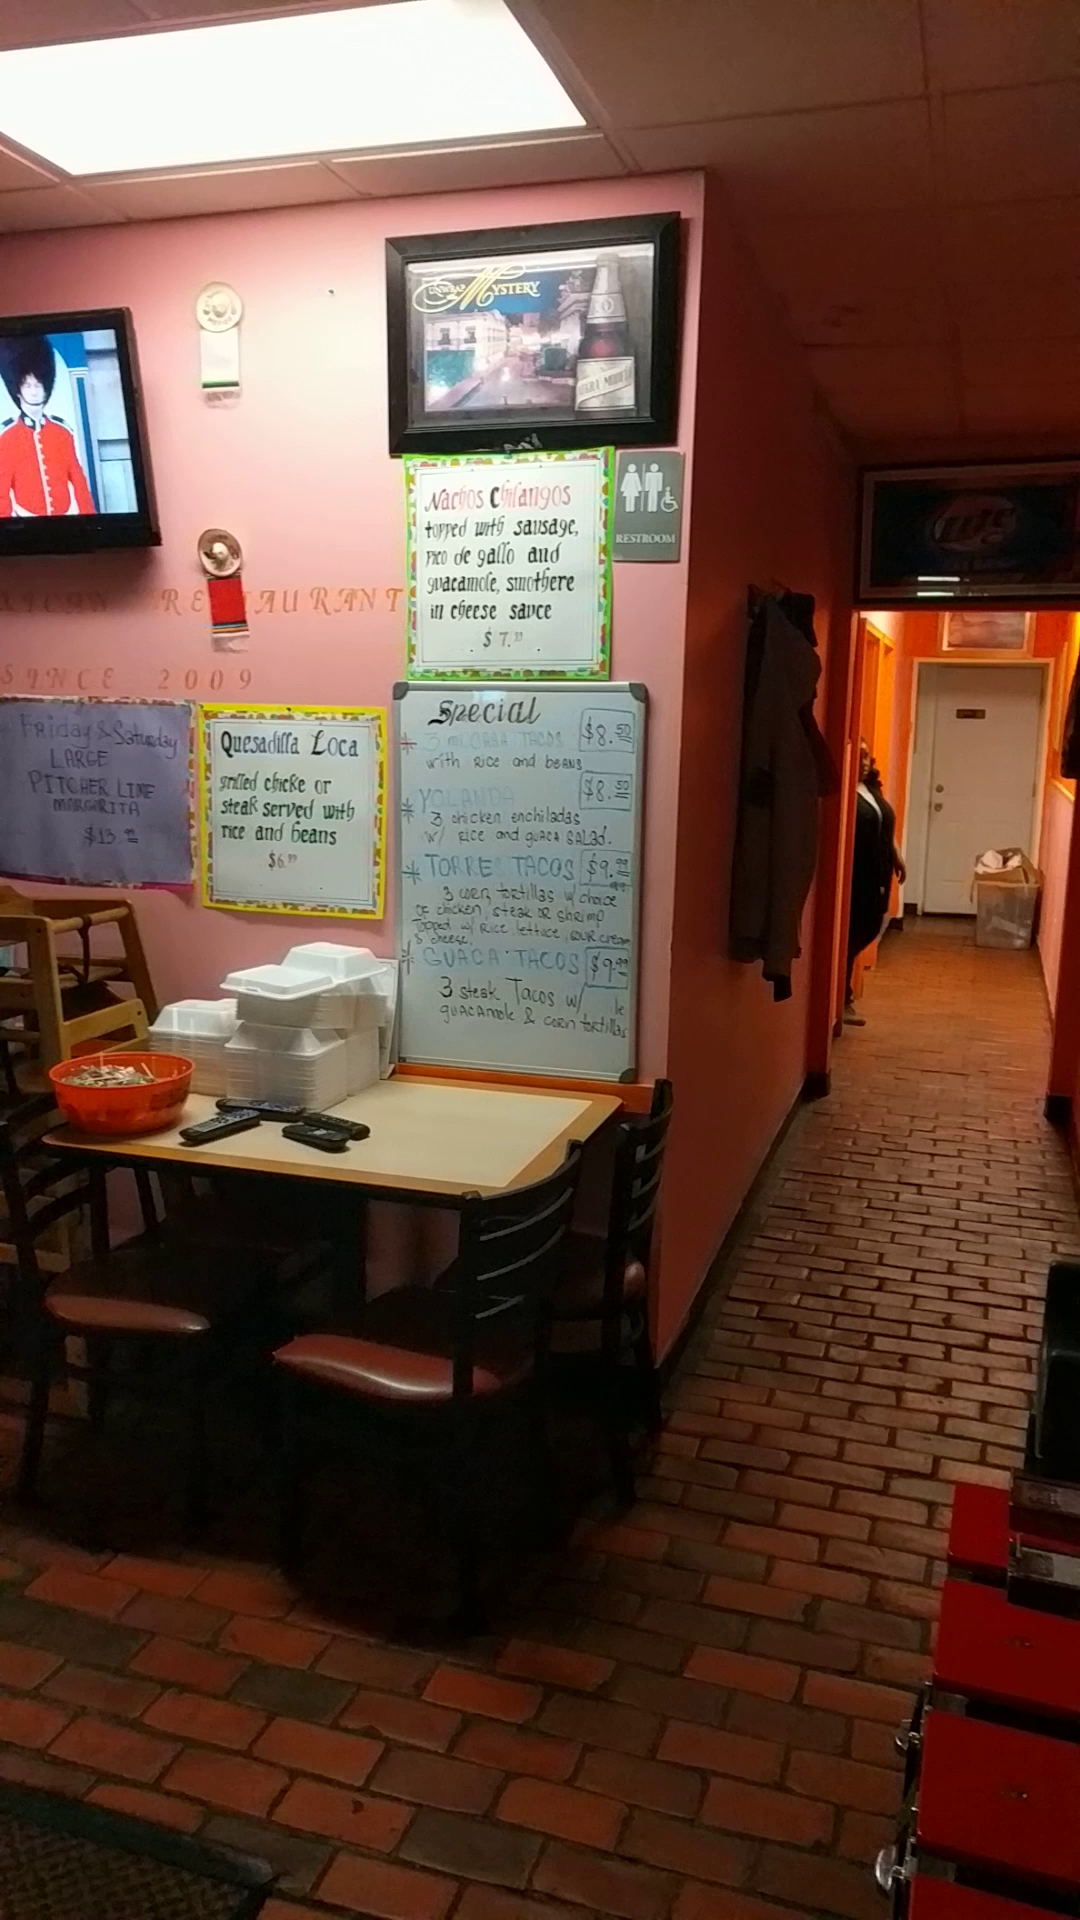 UNWRAP
Mystery
NEGRA MODELO
Nachos Chilangos
topped with sausage,
pico de gallo and
guacamole, smothere
in cheese sauce
$7.99
RESTROOM
RESTAURANT
SINCE 2009
Friday & Saturday
LARGE
PITCHER LIME
MARGARITA
$13.99
Quesadilla Loca
grilled chicke or
steak served with
rice and beans
$6.99
Special
TACOS $8.50
with Rice and beans
YOLANDA $8.50
3 chicken enchiladas
w/ Rice and guaca salad.
TORRE TACOS $9.99
3 corn tortillas w/ choice
of chicken, steak or shrimp
Topped w/ Rice lettuce, sour cream
& cheese.
GUACA TACOS $9.99
3 steak Tacos w/
guacamole & corn tortillas